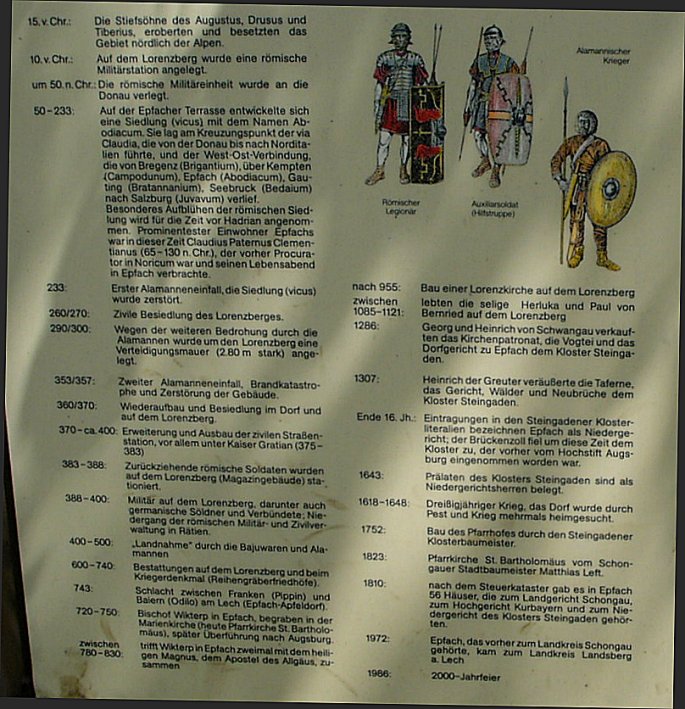 15. v. Chr.: Die Stiefsöhne des Augustus, Drusus und
Tiberius, eroberten und besetzten das
Gebiet nördlich der Alpen.
10. v. Chr.: Auf dem Lorenzberg wurde eine römische
Militärstation angelegt.
um 50. n. Chr.: Die römische Militäreinheit wurde an die
Donau verlegt.
50-233: Auf der Epfacher Terrasse entwickelte sich
eine Siedlung (vicus) mit dem Namen Ab-
odiacum. Sie lag am Kreuzungspunkt der via
Claudia, die von der Donau bis nach Nordita-
lien führte, und der West-Ost-Verbindung,
die von Bregenz (Brigantium), über Kempten
(Campodunum), Epfach (Abodiacum), Gau-
ting (Bratannanium), Seebruck (Bedaium)
nach Salzburg (Juvavum) verlief.
Besonderes Aufblühen der römischen Sied-
lung wird für die Zeit vor Hadrian angenom-
men. Prominentester Einwohner Epfachs
war in dieser Zeit Claudius Paternus Clemen-
tianus (65-130 n. Chr.), der vorher Procura-
tor in Noricum war und seinen Lebensabend
in Epfach verbrachte.
233: Erster Alamanneneinfall, die Siedlung (vicus)
wurde zerstört.
260/270: Zivile Besiedlung des Lorenzberges.
290/300: Wegen der weiteren Bedrohung durch die
Alamannen wurde um den Lorenzberg eine
Verteidigungsmauer (2.80 m stark) ange-
legt.
353/357: Zweiter Alamanneneinfall, Brandkatastro-
phe und Zerstörung der Gebäude.
360/370: Wiederaufbau und Besiedlung im Dorf und
auf dem Lorenzberg.
370-ca. 400: Erweiterung und Ausbau der zivilen Straßen-
station, vor allem unter Kaiser Gratian (375-
383)
383-388: Zurückziehende römische Soldaten wurden
auf dem Lorenzberg (Magazingebäude) sta-
tioniert.
388-400: Militär auf dem Lorenzberg, darunter auch
germanische Söldner und Verbündete; Nie-
dergang der römischen Militär- und Zivilver-
waltung in Rätien.
400-500: „Landnahme" durch die Bajuwaren und Ala-
mannen
600-740: Bestattungen auf dem Lorenzberg und beim
Kriegerdenkmal (Reihengräberfriedhöfe).
743: Schlacht zwischen Franken (Pippin) und
Baiern (Odilo) am Lech (Epfach-Apfeldorf).
720-750: Bischof Wikterp in Epfach, begraben in der
Marienkirche (heute Pfarrkirche St. Bartholo-
mäus), später Überführung nach Augsburg.
zwischen
780-830: trifft Wikterp in Epfach zweimal mit dem heili-
gen Magnus, dem Apostel des Allgäus, zu-
sammen
Römischer
Legionär
Auxiliarsoldat
(Hilfstruppe)
Alamannischer
Krieger
nach 955: Bau einer Lorenzkirche auf dem Lorenzberg
zwischen
1085-1121: lebten die selige Herluka und Paul von
Bernried auf dem Lorenzberg
1286: Georg und Heinrich von Schwangau verkauf-
ten das Kirchenpatronat, die Vogtei und das
Dorfgericht zu Epfach dem Kloster Steinga-
den.
1307: Heinrich der Greuter veräußerte die Taferne,
das Gericht, Wälder und Neubrüche dem
Kloster Steingaden.
Ende 16. Jh.: Eintragungen in den Steingadener Kloster-
literalien bezeichnen Epfach als Niederge-
richt; der Brückenzoll fiel um diese Zeit dem
Kloster zu, der vorher vom Hochstift Augs-
burg eingenommen worden war.
1643: Prälaten des Klosters Steingaden sind als
Niedergerichtsherren belegt.
1618-1648: Dreißigjähriger Krieg, das Dorf wurde durch
Pest und Krieg mehrmals heimgesucht.
1752: Bau des Pfarrhofes durch den Steingadener
Klosterbaumeister.
1823: Pfarrkirche St. Bartholomäus vom Schon-
gauer Stadtbaumeister Matthias Left.
1810: nach dem Steuerkataster gab es in Epfach
56 Häuser, die zum Landgericht Schongau,
zum Hochgericht Kurbayern und zum Nie-
dergericht des Klosters Steingaden gehör-
ten.
1972: Epfach, das vorher zum Landkreis Schongau
gehörte, kam zum Landkreis Landsberg
a. Lech
1986: 2000-Jahrfeier